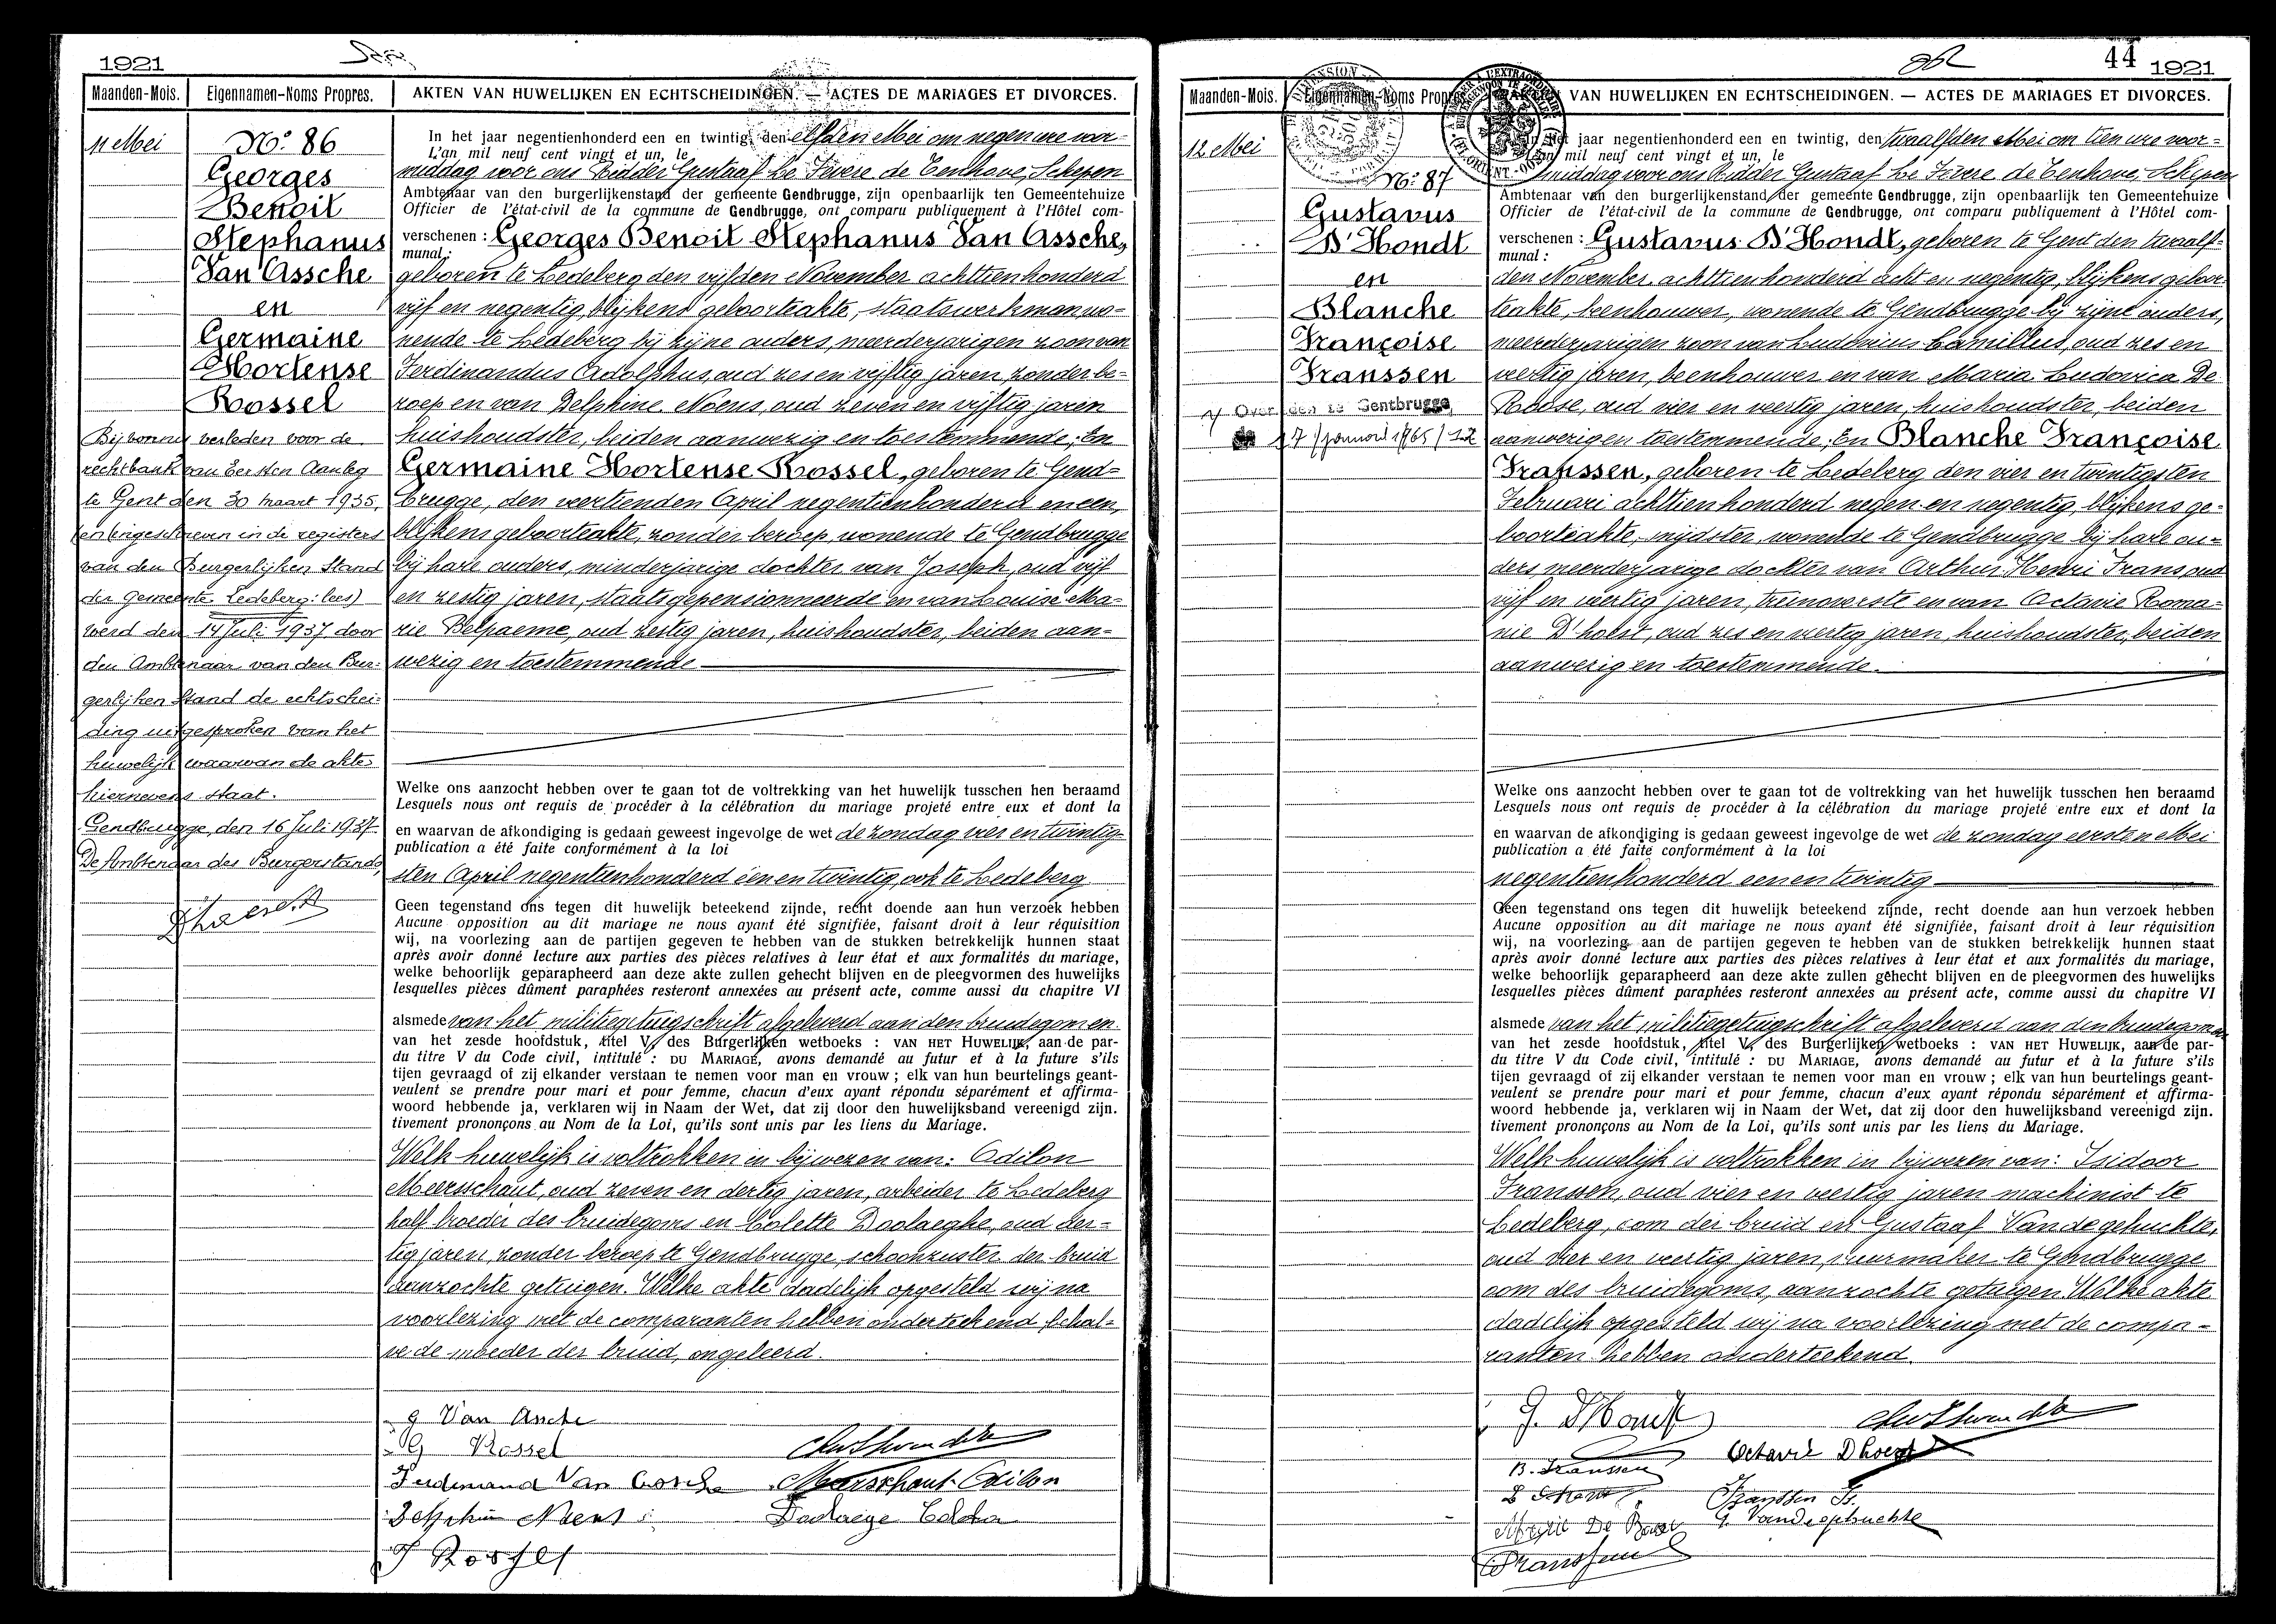 1921
Maanden-Mois. Eigennamen-Noms Propres. AKTEN VAN HUWELIJKEN EN ECHTSCHEIDINGEN. — ACTES DE MARIAGES ET DIVORCES.
11 Mei
No. 86
Georges
Benoit
Stephanus
Van Assche
en
Germaine
Hortense
Rossel
Bij vonnis verleden voor de
rechtbank van Eersten Aanleg
te Gent den 30 maart 1935,
(en ingeschreven in de registers
van den Burgerlijken Stand
der gemeente Ledeberg: lees)
werd den 14 Juli 1937 door
den Ambtenaar van den Bur-
gerlijken Stand de echtschei-
ding uitgesproken van het
huwelijk waarvan de akte
hiernevens staat.
Gendbrugge, den 16 Juli 1937.
De Ambtenaar des Burgerstands,
In het jaar negentienhonderd een en twintig, den elfden Mei om negen ure voor-
L'an mil neuf cent vingt et un, le
middag voor ons Ridder Gustaaf Le Fevere de Tenhove, Schepen
Ambtenaar van den burgerlijkenstand der gemeente Gendbrugge, zijn openbaarlijk ten Gemeentehuize
Officier de l'état-civil de la commune de Gendbrugge, ont comparu publiquement à l'Hôtel com-
verschenen : Georges Benoit Stephanus Van Assche,
munal :
geboren te Ledeberg den vijfden November achttienhonderd
vijf en negentig, blijkens geboorteakte, staatswerkman, wo-
nende te Ledeberg bij zijne ouders, meerderjarigen zoon van
Ferdinandus Adolphus, oud zes en vijftig jaren, zonder be-
roep en van Delphine Noens, oud zeven en vijftig jaren
huishoudster, beiden aanwezig en toestemmende; En
Germaine Hortense Rossel, geboren te Gend-
brugge, den veertienden April negentienhonderd en een,
blijkens geboorteakte, zonder beroep, wonende te Gendbrugge
bij hare ouders, minderjarige dochter van Joseph, oud vijf
en zestig jaren, staatsgepensionneerde en van Louise Ma-
rie Belpaeme, oud zestig jaren, huishoudster, beiden aan-
wezig en toestemmende
Welke ons aanzocht hebben over te gaan tot de voltrekking van het huwelijk tusschen hen beraamd
Lesquels nous ont requis de procéder à la célébration du mariage projeté entre eux et dont la
en waarvan de afkondiging is gedaan geweest ingevolge de wet de zondag vier en twintig-
publication a été faite conformément à la loi
sten April negentienhonderd één en twintig, ook te Ledeberg
Geen tegenstand ons tegen dit huwelijk beteekend zijnde, recht doende aan hun verzoek hebben
Aucune opposition au dit mariage ne nous ayant été signifiée, faisant droit à leur réquisition
wij, na voorlezing aan de partijen gegeven te hebben van de stukken betrekkelijk hunnen staat
après avoir donné lecture aux parties des pièces relatives à leur état et aux formalités du mariage,
welke behoorlijk geparapheerd aan deze akte zullen gehecht blijven en de pleegvormen des huwelijks
lesquelles pièces dûment paraphées resteront annexées au présent acte, comme aussi du chapitre VI
alsmede van het militiegetuigschrift afgeleverd aan den bruidegom en
van het zesde hoofdstuk, titel V, des Burgerlijken wetboeks : VAN HET HUWELIJK, aan de par-
du titre V du Code civil, intitulé : DU MARIAGE, avons demandé au futur et à la future s'ils
tijen gevraagd of zij elkander verstaan te nemen voor man en vrouw ; elk van hun beurtelings geant-
veulent se prendre pour mari et pour femme, chacun d'eux ayant répondu séparément et affirma-
woord hebbende ja, verklaren wij in Naam der Wet, dat zij door den huwelijksband vereenigd zijn.
tivement prononçons au Nom de la Loi, qu'ils sont unis par les liens du Mariage.
Welk huwelijk is voltrokken in bijwezen van: Odilon
Meersschaut, oud zeven en dertig jaren, arbeider te Ledeberg
half broeder des bruidegoms en Colette Doolaeghe, oud der-
tig jaren, zonder beroep te Gendbrugge, schoonzuster der bruid
aanzochte getuigen. Welke akte dadelijk opgesteld wij na
voorlezing met de comparanten hebben onderteekend behal-
ve de moeder der bruid, ongeleerd.
G Van Assche
G Rossel
Ferdinand Van Assche Meersschaut Odilon
J Rossel
44 1921
Maanden-Mois. Eigennamen-Noms Propres. VAN HUWELIJKEN EN ECHTSCHEIDINGEN. — ACTES DE MARIAGES ET DIVORCES.
12 Mei
No. 87
Gustavus
D'Hondt
en
Blanche
Françoise
Franssen
Overleden te Gentbrugge
17 januari 1965 / 12
jaar negentienhonderd een en twintig, den twaalfden Mei om tien ure voor-
mil neuf cent vingt et un, le
middag voor ons Ridder Gustaaf Le Fevere de Tenhove, Schepen
Ambtenaar van den burgerlijkenstand der gemeente Gendbrugge, zijn openbaarlijk ten Gemeentehuize
Officier de l'état-civil de la commune de Gendbrugge, ont comparu publiquement à l'Hôtel com-
verschenen : Gustavus D'Hondt, geboren te Gent den twaalf-
munal :
den November achttienhonderd acht en negentig, blijkens geboor-
teakte, beenhouwer, wonende te Gendbrugge bij zijne ouders,
meerderjarigen zoon van Ludovicus Camillus, oud zes en
veertig jaren, beenhouwer en van Maria Ludovica De
Roose, oud vier en veertig jaren, huishoudster, beiden
aanwezig en toestemmende; En Blanche Françoise
Franssen, geboren te Ledeberg den vier en twintigsten
Februari achttienhonderd negen en negentig, blijkens ge-
boorteakte, snijdster, wonende te Gendbrugge bij hare ou-
ders, meerderjarige dochter van Arthur Henri Frans, oud
vijf en veertig jaren, treinoverste en van Octavie Roma-
nie D'hoest, oud zes en veertig jaren, huishoudster, beiden
aanwezig en toestemmende.
Welke ons aanzocht hebben over te gaan tot de voltrekking van het huwelijk tusschen hen beraamd
Lesquels nous ont requis de procéder à la célébration du mariage projeté entre eux et dont la
en waarvan de afkondiging is gedaan geweest ingevolge de wet de zondag eersten Mei
publication a été faite conformément à la loi
negentienhonderd een en twintig
Geen tegenstand ons tegen dit huwelijk beteekend zijnde, recht doende aan hun verzoek hebben
Aucune opposition au dit mariage ne nous ayant été signifiée, faisant droit à leur réquisition
wij, na voorlezing aan de partijen gegeven te hebben van de stukken betrekkelijk hunnen staat
après avoir donné lecture aux parties des pièces relatives à leur état et aux formalités du mariage,
welke behoorlijk geparapheerd aan deze akte zullen gehecht blijven en de pleegvormen des huwelijks
lesquelles pièces dûment paraphées resteront annexées au présent acte, comme aussi du chapitre VI
alsmede van het militiegetuigschrift afgeleverd aan den bruidegom en
van het zesde hoofdstuk, titel V, des Burgerlijken wetboeks : VAN HET HUWELIJK, aan de par-
du titre V du Code civil, intitulé : DU MARIAGE, avons demandé au futur et à la future s'ils
tijen gevraagd of zij elkander verstaan te nemen voor man en vrouw ; elk van hun beurtelings geant-
veulent se prendre pour mari et pour femme, chacun d'eux ayant répondu séparément et affirma-
woord hebbende ja, verklaren wij in Naam der Wet, dat zij door den huwelijksband vereenigd zijn.
tivement prononçons au Nom de la Loi, qu'ils sont unis par les liens du Mariage.
Welk huwelijk is voltrokken in bijwezen van: Isidoor
Franssen, oud vier en veertig jaren machinist te
Ledeberg, oom der bruid en Gustaaf Vandegehuchte,
oud vier en veertig jaren, vuurmaker te Gendbrugge
oom des bruidegoms, aanzochte getuigen. Welke akte
dadelijk opgesteld wij na voorlezing met de compa-
ranten hebben onderteekend.
G. D'Hondt
B. Franssen Octavie Dhoest
Franssen Is.
G. Vandegehuchte
Franssen